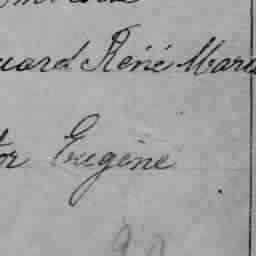 uard René Marie
tor Eugène